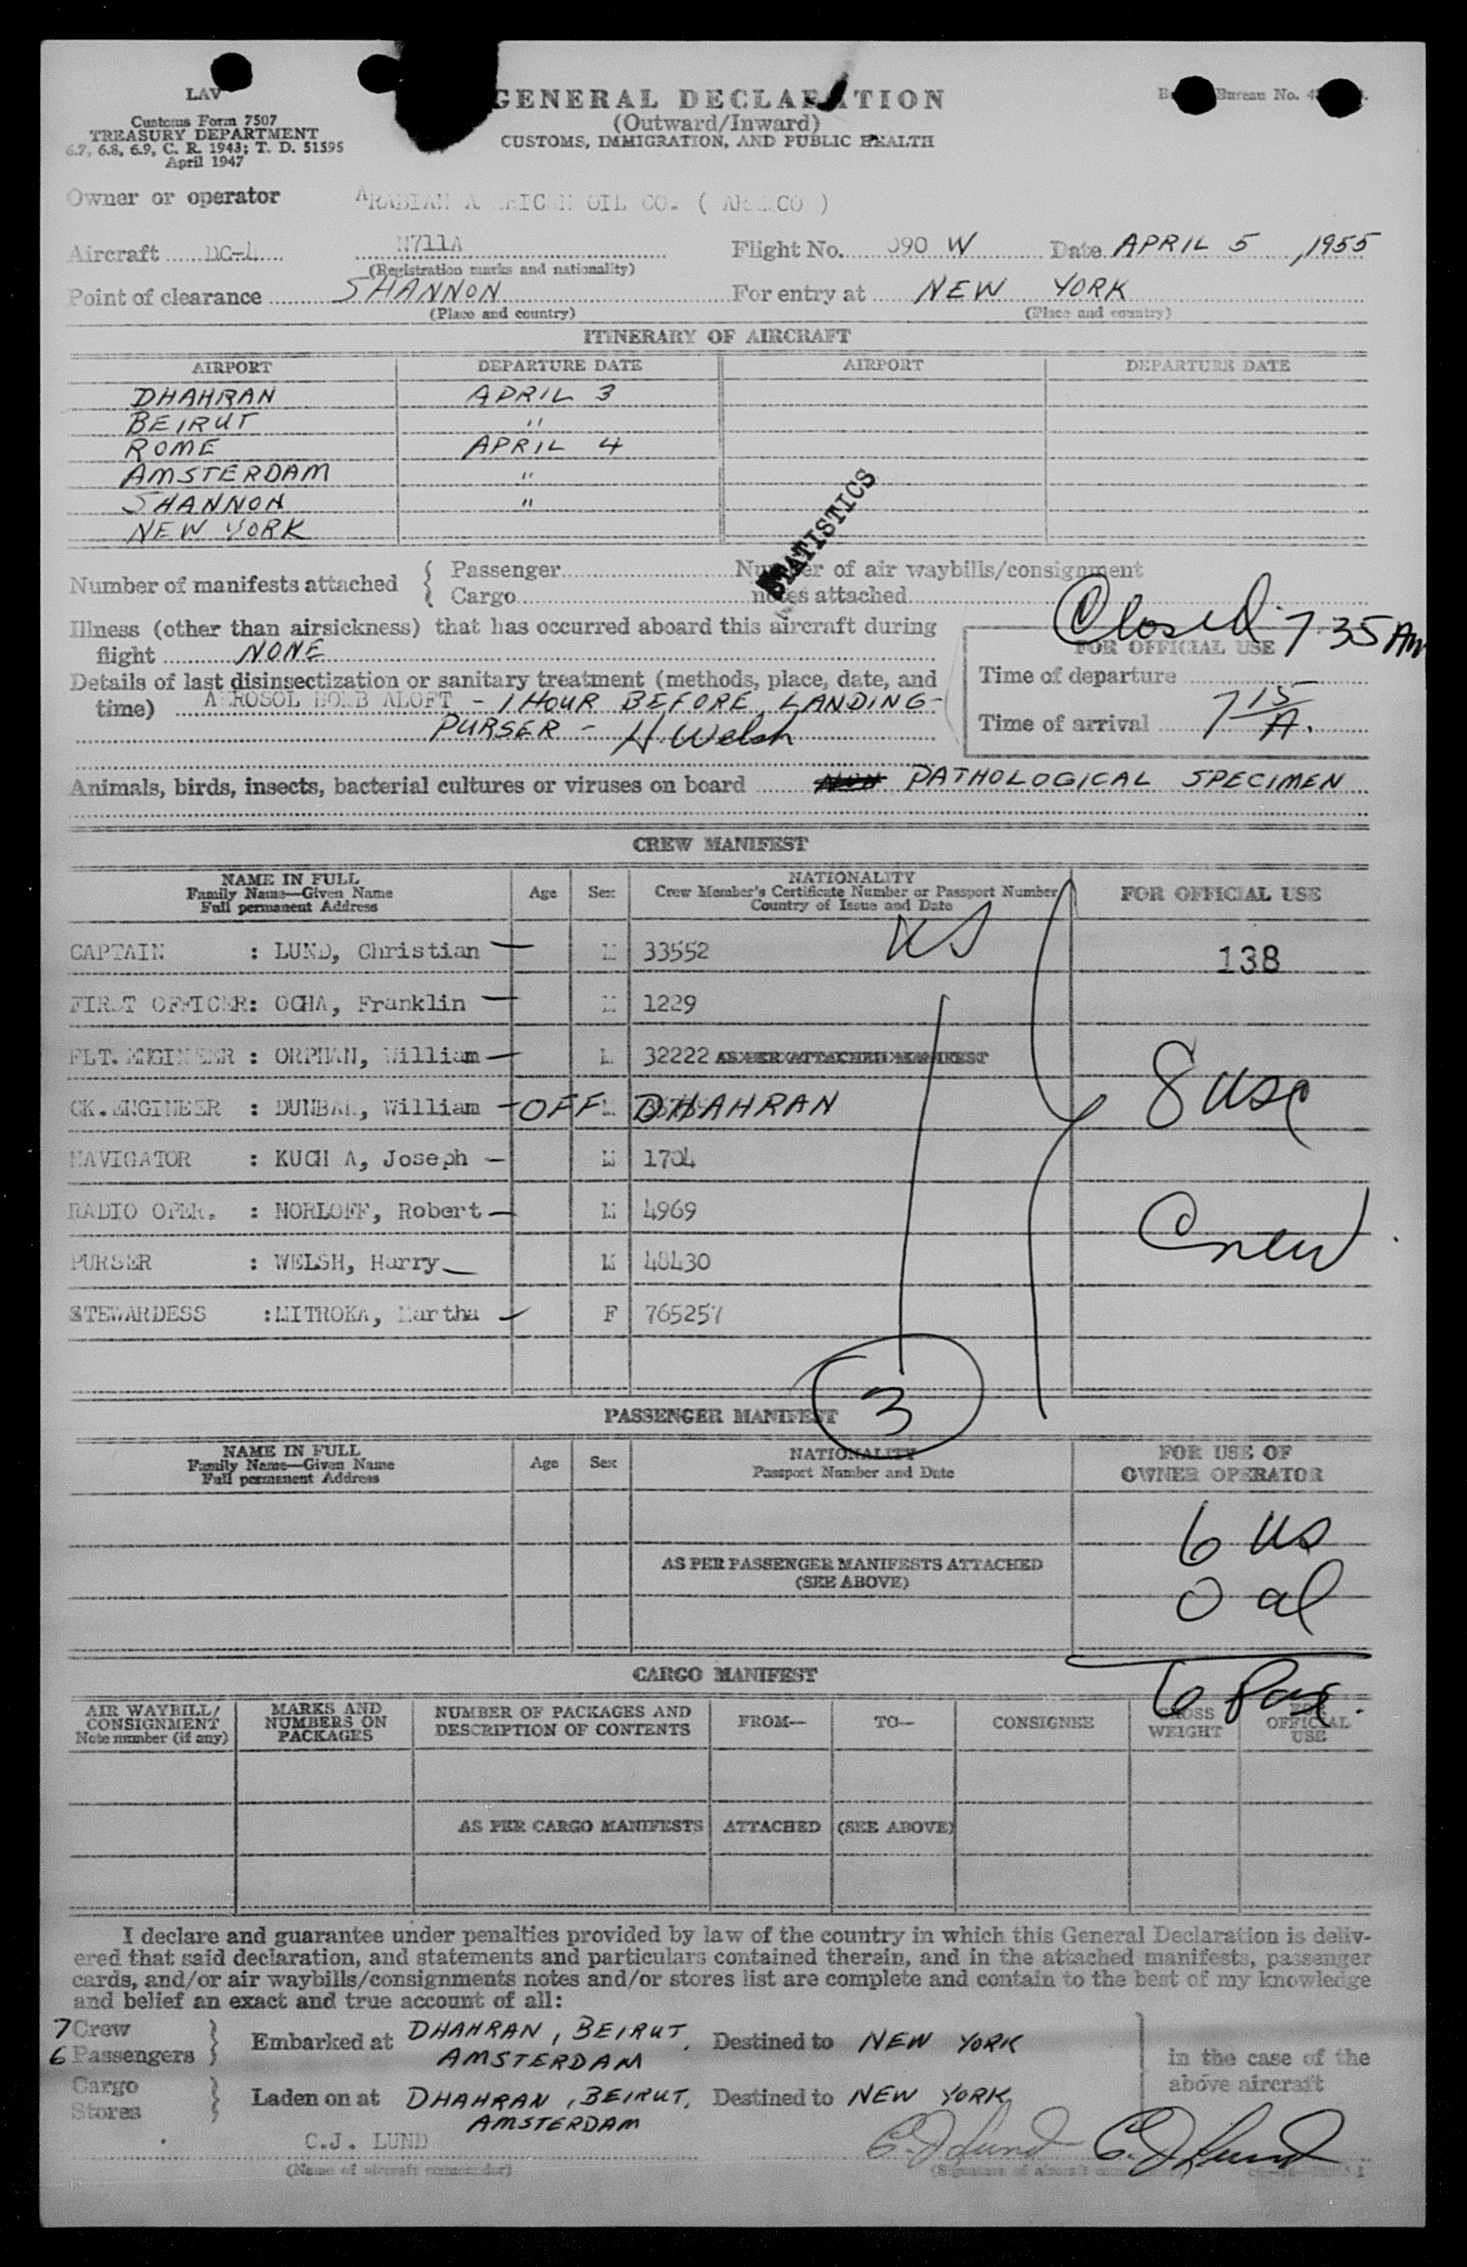 LAV
Customs Form 7507
TREASURY DEPARTMENT
6.7, 6.8, 6.9, C. R. 1943; T. D. 51595
April 1947
GENERAL DECLARATION
(Outward/Inward)
CUSTOMS, IMMIGRATION, AND PUBLIC HEALTH
Bureau No.
Owner or operator ARABIAN AMERICAN OIL CO. ( ARAMCO )
Aircraft DC-4 N711A Flight No. 090 W Date APRIL 5, 1955
(Registration marks and nationality)
Point of clearance SHANNON For entry at NEW YORK
(Place and country) (Place and country)
ITINERARY OF AIRCRAFT
AIRPORT DEPARTURE DATE AIRPORT DEPARTURE DATE
DHAHRAN APRIL 3
BEIRUT "
ROME APRIL 4
AMSTERDAM "
SHANNON "
NEW YORK
STATISTICS
Number of manifests attached { Passenger Number of air waybills/consignment
Cargo notes attached
Closed 7 35 AM
Illness (other than airsickness) that has occurred aboard this aircraft during
flight NONE
FOR OFFICIAL USE
Details of last disinsectization or sanitary treatment (methods, place, date, and
time) AEROSOL BOMB ALOFT - 1 HOUR BEFORE LANDING -
PURSER - H Welsh
Time of departure
Time of arrival 7 15 A.
Animals, birds, insects, bacterial cultures or viruses on board PATHOLOGICAL SPECIMEN
CREW MANIFEST
NAME IN FULL
Family Name—Given Name
Full permanent Address
Age Sex
NATIONALITY
Crew Member's Certificate Number or Passport Number
Country of Issue and Date
FOR OFFICIAL USE
US
CAPTAIN : LUND, Christian — M 33552 138
FIRST OFFICER: OCHA, Franklin — M 1229
FLT. ENGINEER : ORPHAN, William — M 32222 AS PER ATTACHED MANIFEST
CK. ENGINEER : DUNBAR, William — OFF DHAHRAN
8 USC
NAVIGATOR : KUCH A, Joseph — M 1704
RADIO OPER. : NORLOFF, Robert — M 4969
Crew
PURSER : WELSH, Harry — M 48430
STEWARDESS :MITROKA, Martha — F 765257
3
PASSENGER MANIFEST
NAME IN FULL
Family Name—Given Name
Full permanent Address
Age Sex
NATIONALITY
Passport Number and Date
FOR USE OF
OWNER OPERATOR
6 US
AS PER PASSENGER MANIFESTS ATTACHED
(SEE ABOVE)
0 al
6 Pax.
CARGO MANIFEST
AIR WAYBILL/
CONSIGNMENT
Note number (if any)
MARKS AND
NUMBERS ON
PACKAGES
NUMBER OF PACKAGES AND
DESCRIPTION OF CONTENTS
FROM— TO— CONSIGNEE
GROSS
WEIGHT
FOR
OFFICIAL
USE
AS PER CARGO MANIFESTS ATTACHED (SEE ABOVE)
I declare and guarantee under penalties provided by law of the country in which this General Declaration is deliv-
ered that said declaration, and statements and particulars contained therein, and in the attached manifests, passenger
cards, and/or air waybills/consignments notes and/or stores list are complete and contain to the best of my knowledge
and belief an exact and true account of all:
7 Crew
6 Passengers } Embarked at DHAHRAN, BEIRUT, AMSTERDAM Destined to NEW YORK
in the case of the
above aircraft
Cargo
Stores } Laden on at DHAHRAN, BEIRUT, AMSTERDAM Destined to NEW YORK
C.J. LUND C. J Lund C. J Lund
(Name of aircraft commander) (Signature of aircraft